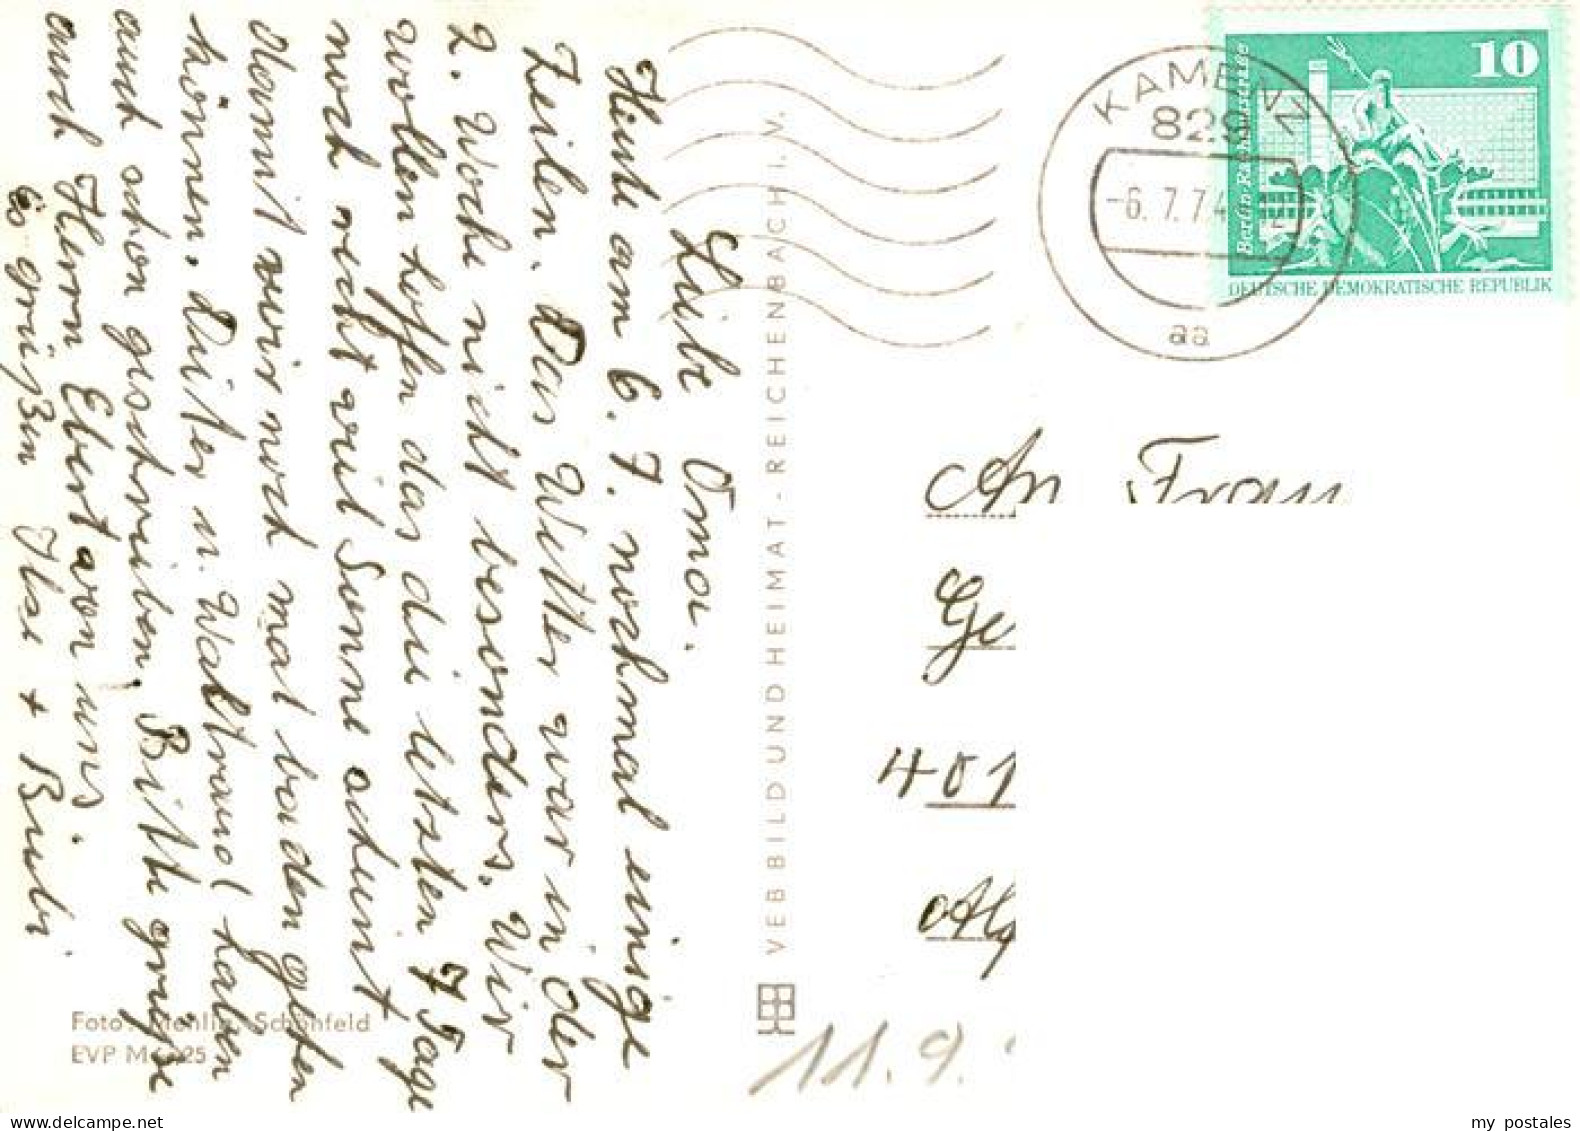 Liebe Oma.
Heute am 6. 7. nochmal einige
Zeilen. Das Wetter war in der
2. Woche nicht besonders. Wir
wollen hoffen das die letzten 7 Tage
noch recht viel Sonne scheint
damit wir noch mal baden gehen
können. Dieter u. Waltraud haben
auch schon geschrieben. Bitte grüße
auch Herrn Ebert von uns.
Es grüßen Ilse + Bubi
Foto: Schönfeld
EVP M 0,25
VEB BILD UND HEIMAT - REICHENBACH I. V.
KAMENZ
826
-6. 7. 74
aa
10
Berlin Rathausstraße
DEUTSCHE DEMOKRATISCHE REPUBLIK
An Frau
Ge
401
11. 9.
my postales